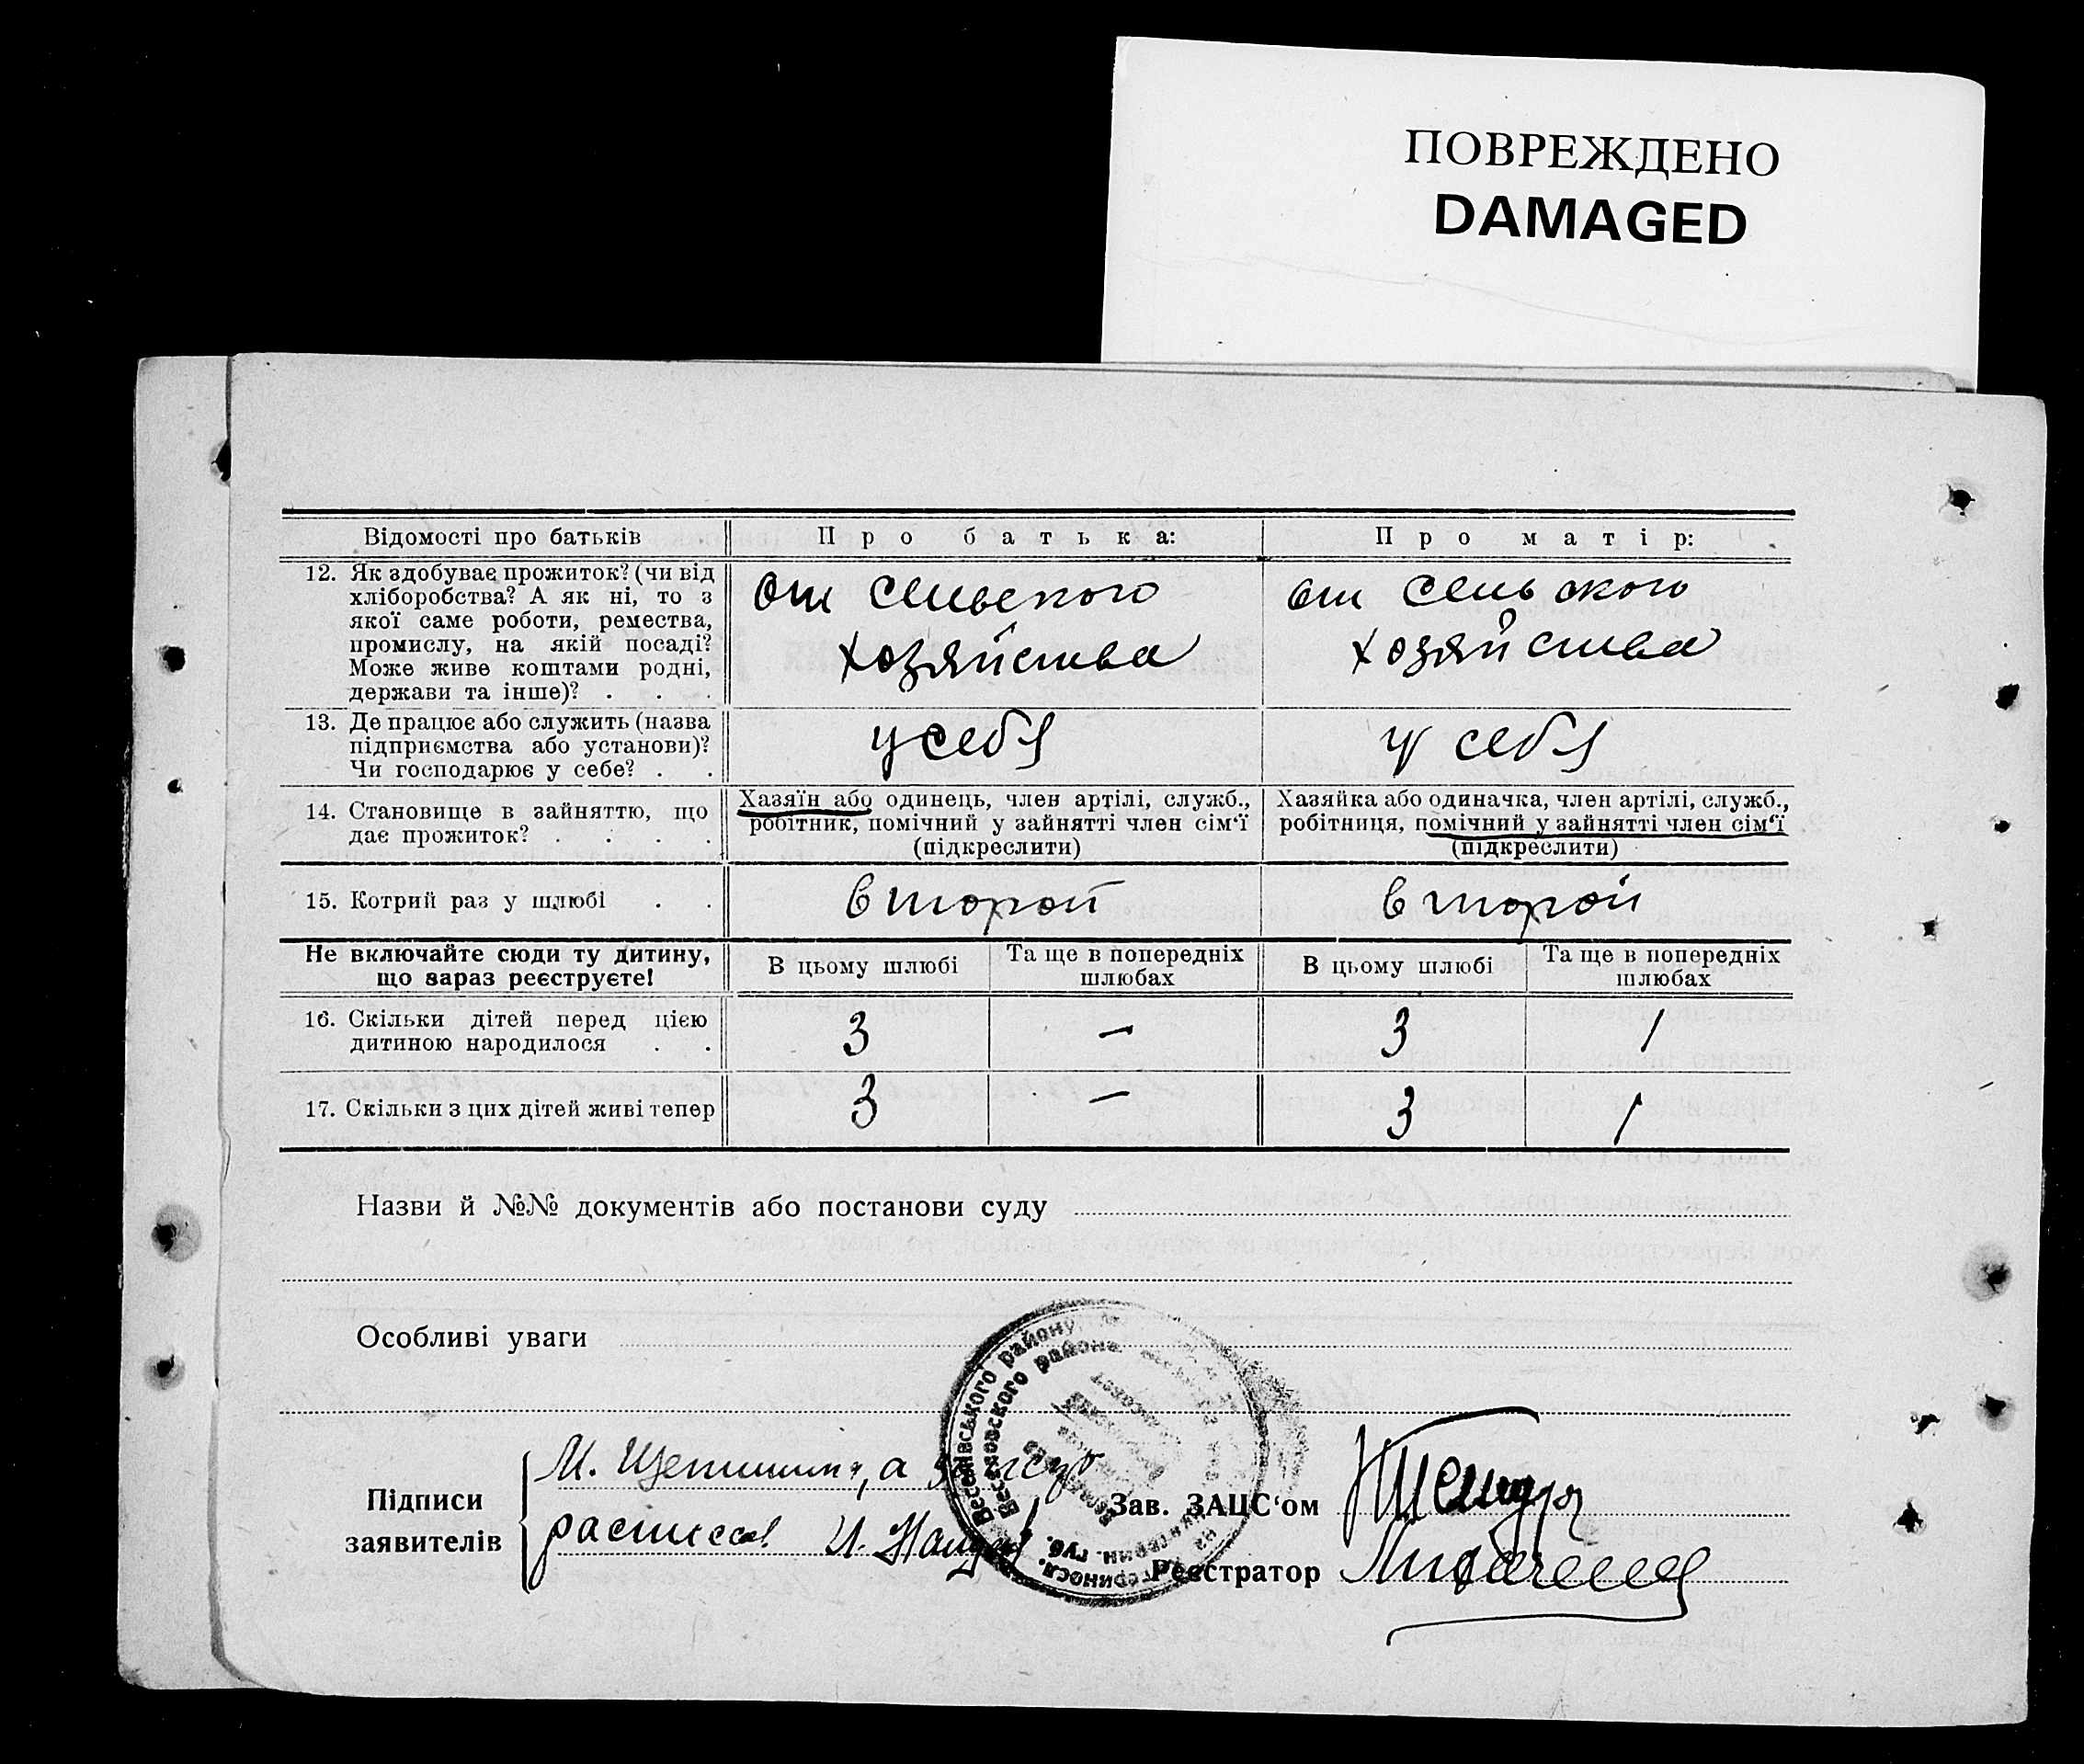 ПОВРЕЖДЕНО
DAMAGED
Відомості про батьків
Про батька:
Про матір:
12. Як здобуває прожиток? (чи від
хліборобства? А як ні, то з
якої саме роботи, ремества,
промислу, на якій посаді?
Може живе коштами родні,
держави та інше)? . . .
от сельского
хозяйства
от сельского
хозяйства
13. Де працює або служить (назва
підприємства або установи)?
Чи господарює у себе? . .
у себя
у себя
14. Становище в зайняттю, що
дає прожиток? . . . .
Хазяїн або одинець, член артілі, служб.,
робітник, помічний у зайнятті член сім‘ї
(підкреслити)
Хазяйка або одиначка, член артілі, служб.,
робітниця, помічний у зайнятті член сім‘ї
(підкреслити)
15. Котрий раз у шлюбі . .
второй
второй
Не включайте сюди ту дитину,
що зараз реєструєте!
В цьому шлюбі
Та ще в попередніх
шлюбах
В цьому шлюбі
Та ще в попередніх
шлюбах
16. Скільки дітей перед цією
дитиною народилося . .
3
—
3
1
17. Скільки з цих дітей живі тепер
3
—
3
1
Назви й №№ документів або постанови суду
Особливі уваги
Підписи
заявителів
М. Щетинин, а за него
расписал И.
Зав. ЗАЦС‘ом
Реєстратор
Веселівського району
Веселовского района